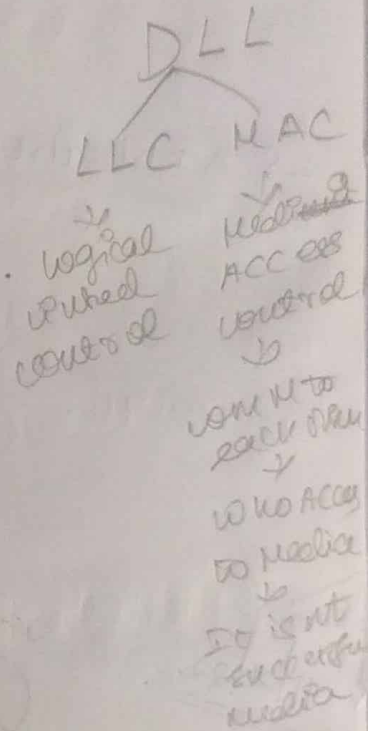 DLL
LLC MAC
Logical
Linked
control
Media
ACCess
control
comm to
each other
who Access
to Media
It is nt
successful
media